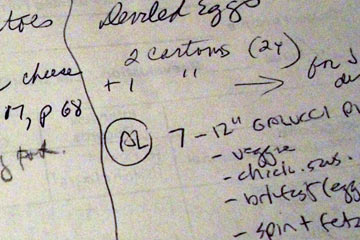 toes
cheese
M, p 68
Deviled Eggs
2 cartons (24)
+ 1 " → for
AL 7 - 12" GALUCCI
- veggie
- chick. saus.
- spin + feta